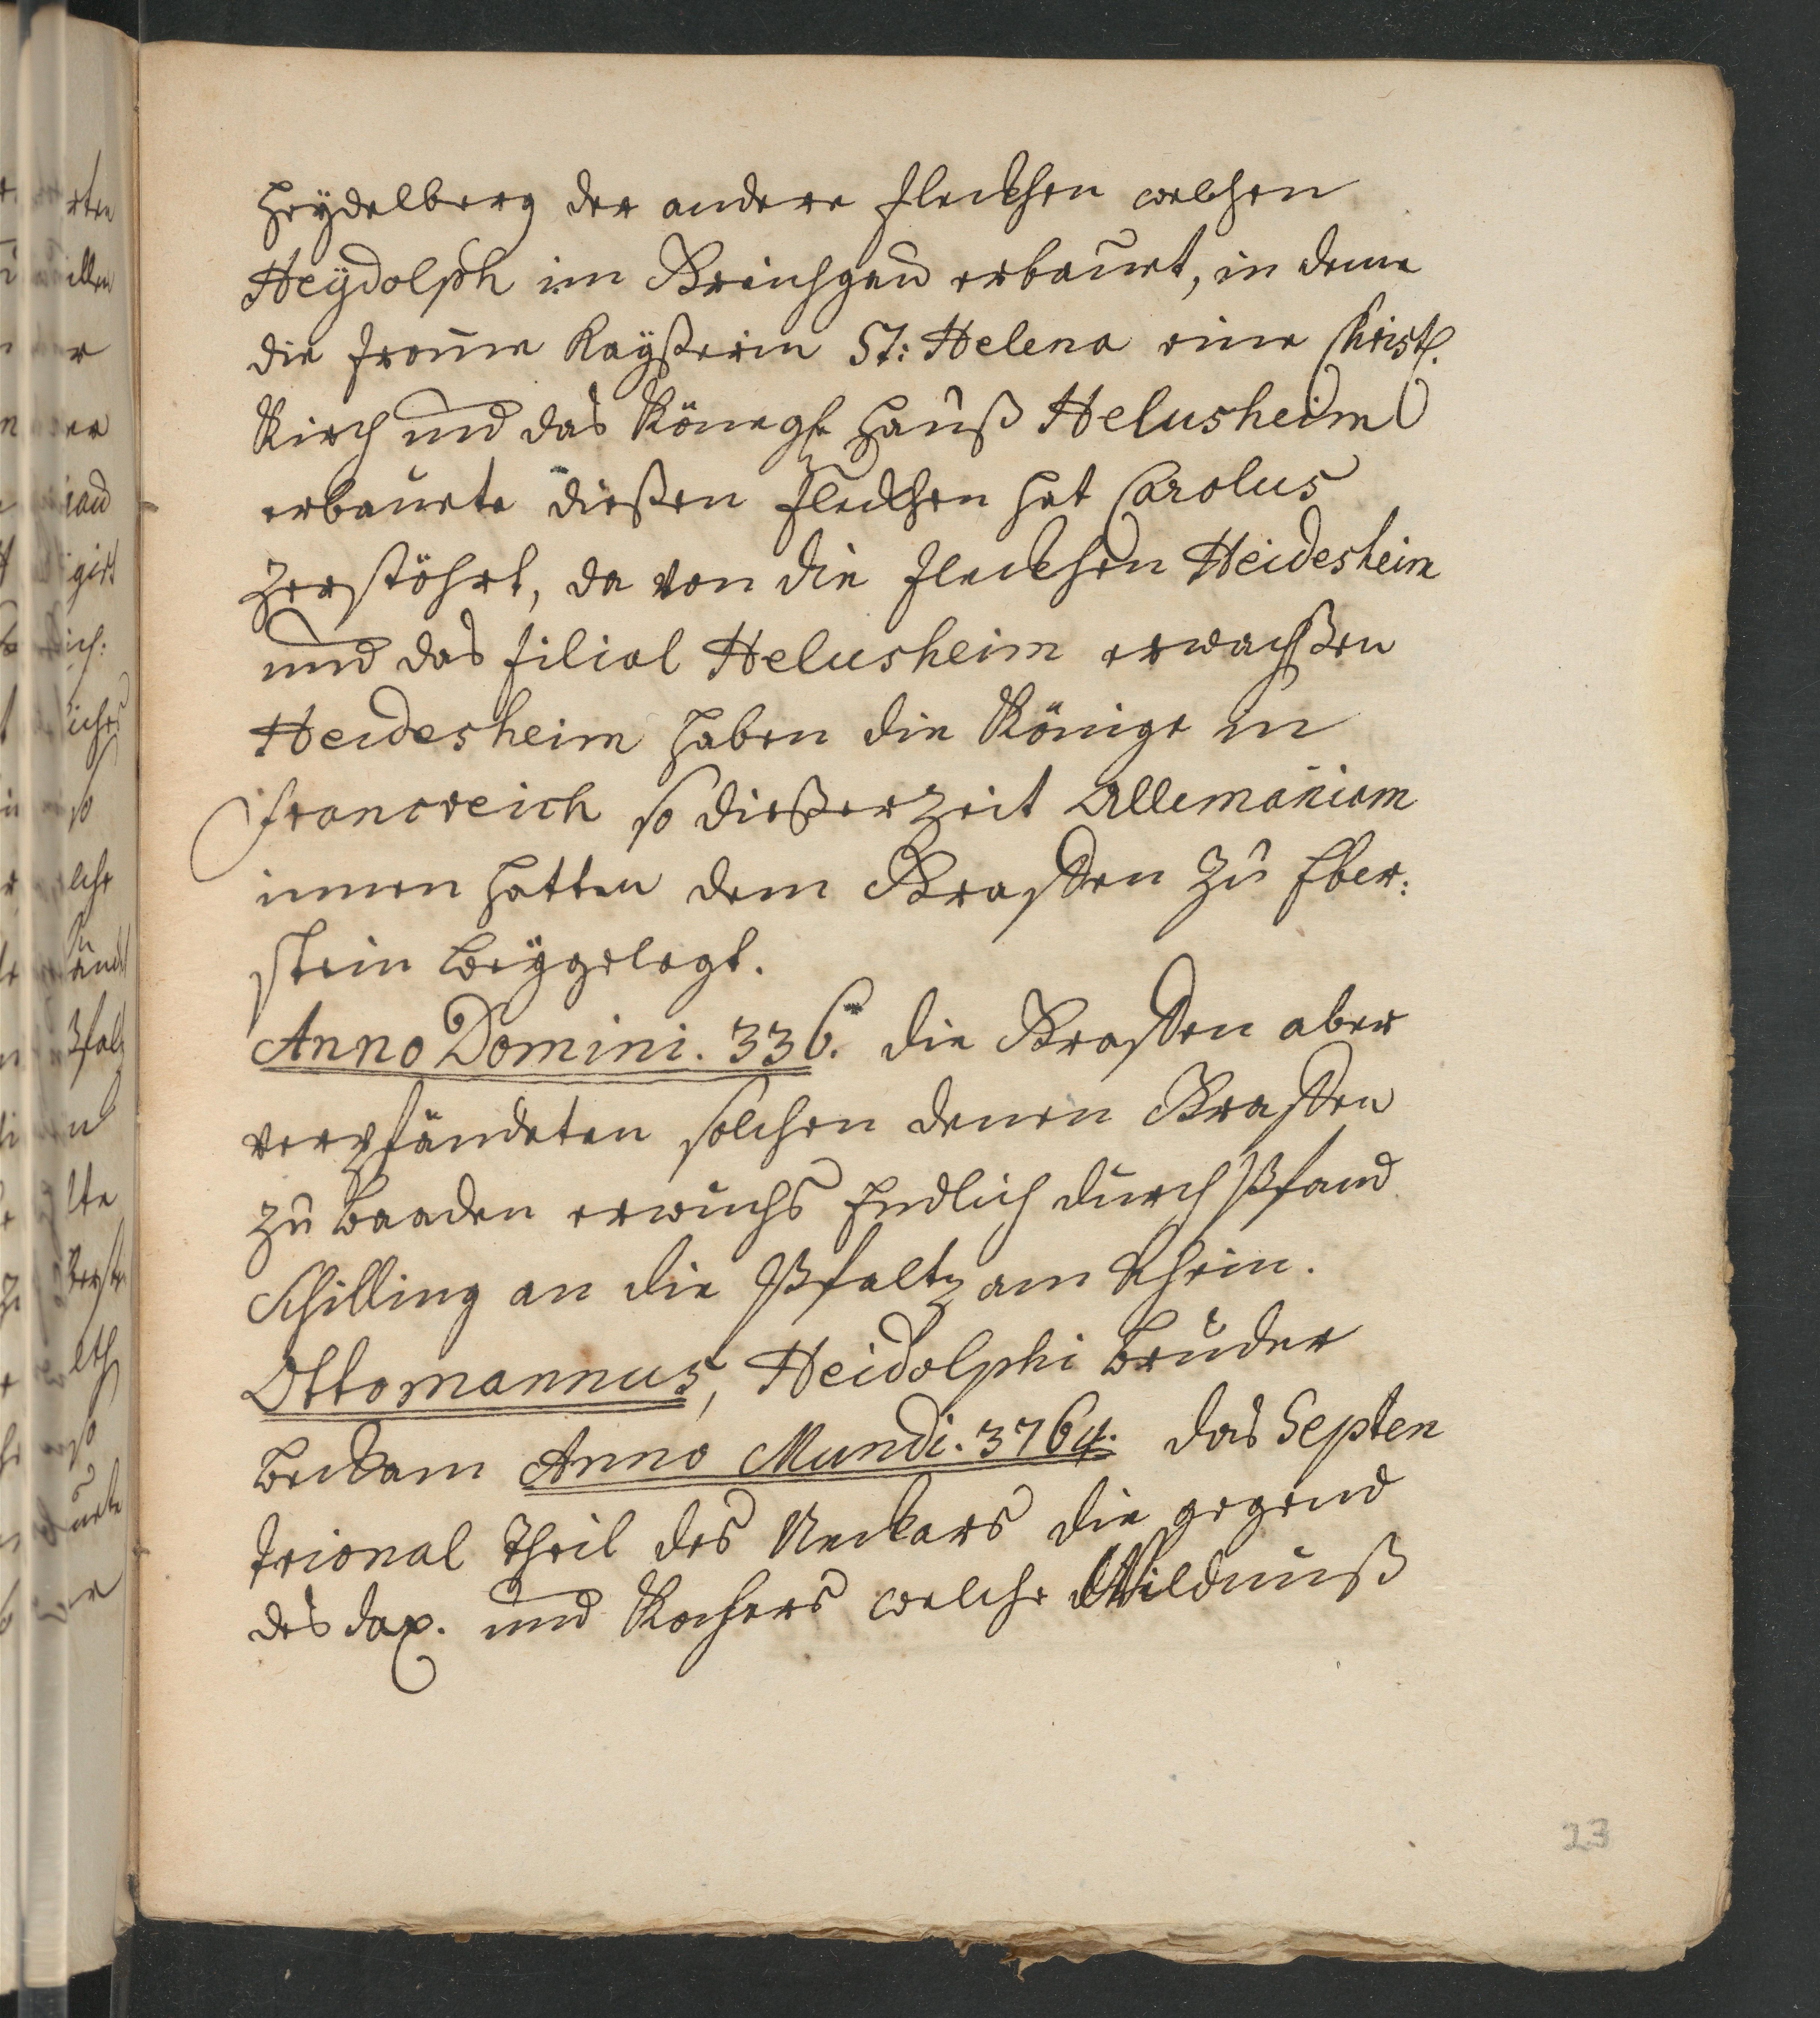 Heÿdelberg der andere fleckhen welchen
Heÿdolph im Breichgau erbauet, in deme
die from̄e Kaÿßerin St: Helena eine Christl.
Kirch und das Könegl. Hauß Helusheim
erbauete dießen fleckhen hat Carolus
zerstöhrt, da von die fleckhen Heidesheim
und das filial Helusheim erwachßen
Heidesheim haben die Könige in
francreich so dießer zeit Allemaniam
innen hatten dem Graffen zu Eber:
stein beÿgelegt.
Anno Domini. 336. die Graffen aber
verpfändeten solchen denen Graffen
zu Baaden erwuchs Endlich durch Pfand
Schilling an die Pfaltz am Rhein.
Ottomannus, Heidolphi bruder
beckam Anno Mundi. 3764. das Septen
trional theil des Neckars die gegend
des Jax. und Kochers welche Wildnuß
23